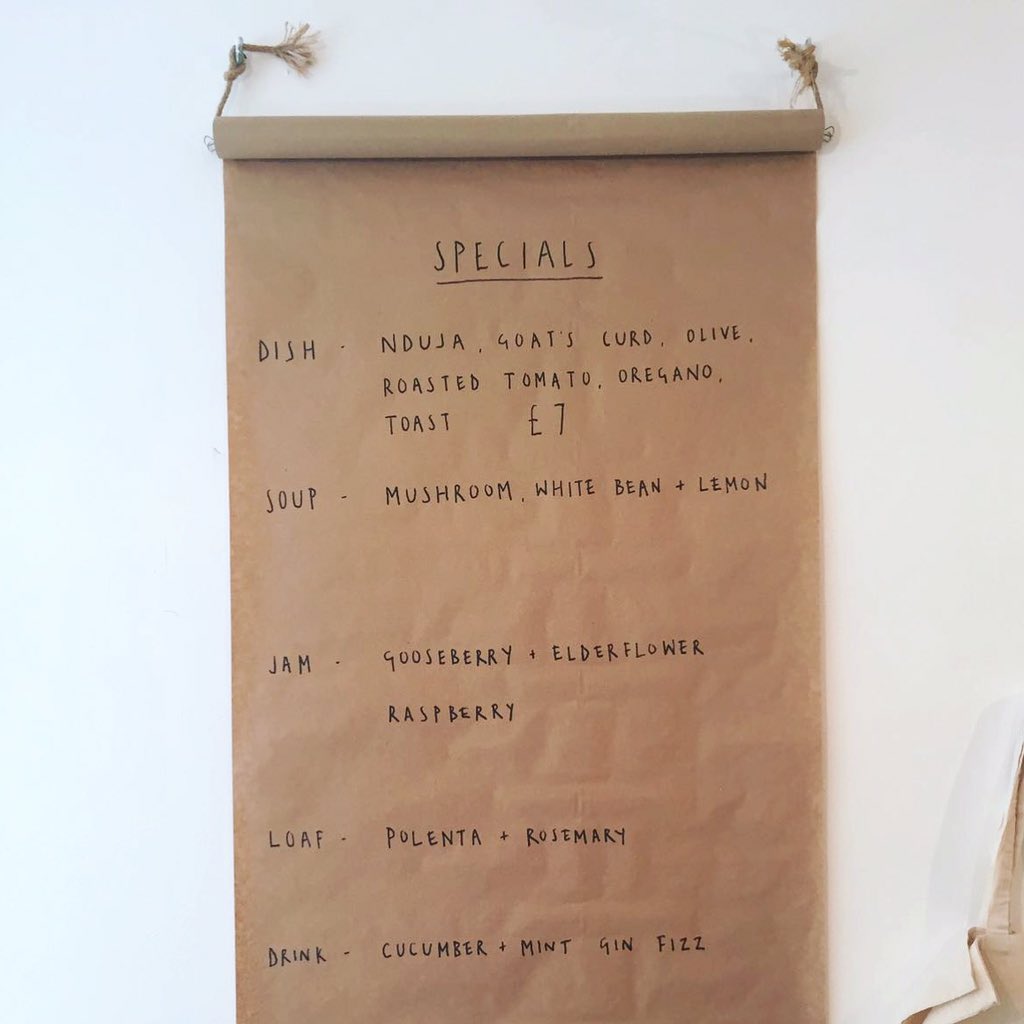 SPECIALS
DISH - NDUJA, GOAT'S CURD, OLIVE,
ROASTED TOMATO, OREGANO,
TOAST £7
SOUP - MUSHROOM, WHITE BEAN + LEMON
JAM - GOOSEBERRY + ELDERFLOWER
RASPBERRY
LOAF - POLENTA + ROSEMARY
DRINK - CUCUMBER + MINT GIN FIZZ